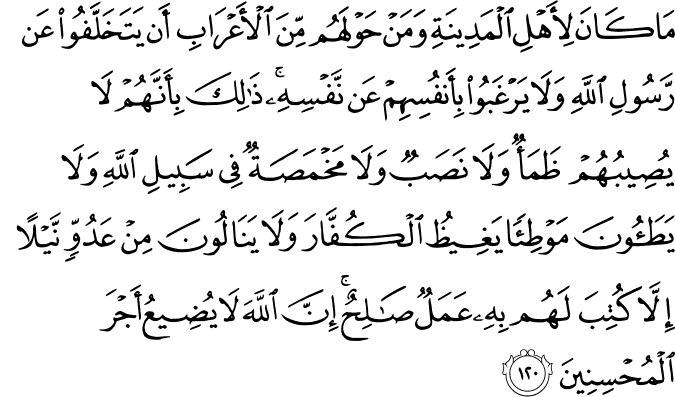 مَا كَانَ لِأَهْلِ ٱلْمَدِينَةِ وَمَنْ حَوْلَهُم مِّنَ ٱلْأَعْرَابِ أَن يَتَخَلَّفُوا۟ عَن
رَّسُولِ ٱللَّهِ وَلَا يَرْغَبُوا۟ بِأَنفُسِهِمْ عَن نَّفْسِهِۦ ۚ ذَٰلِكَ بِأَنَّهُمْ لَا
يُصِيبُهُمْ ظَمَأٌ وَلَا نَصَبٌ وَلَا مَخْمَصَةٌ فِى سَبِيلِ ٱللَّهِ وَلَا
يَطَـُٔونَ مَوْطِئًا يَغِيظُ ٱلْكُفَّارَ وَلَا يَنَالُونَ مِنْ عَدُوٍّ نَّيْلًا
إِلَّا كُتِبَ لَهُم بِهِۦ عَمَلٌ صَـٰلِحٌ ۚ إِنَّ ٱللَّهَ لَا يُضِيعُ أَجْرَ
ٱلْمُحْسِنِينَ ١٢٠